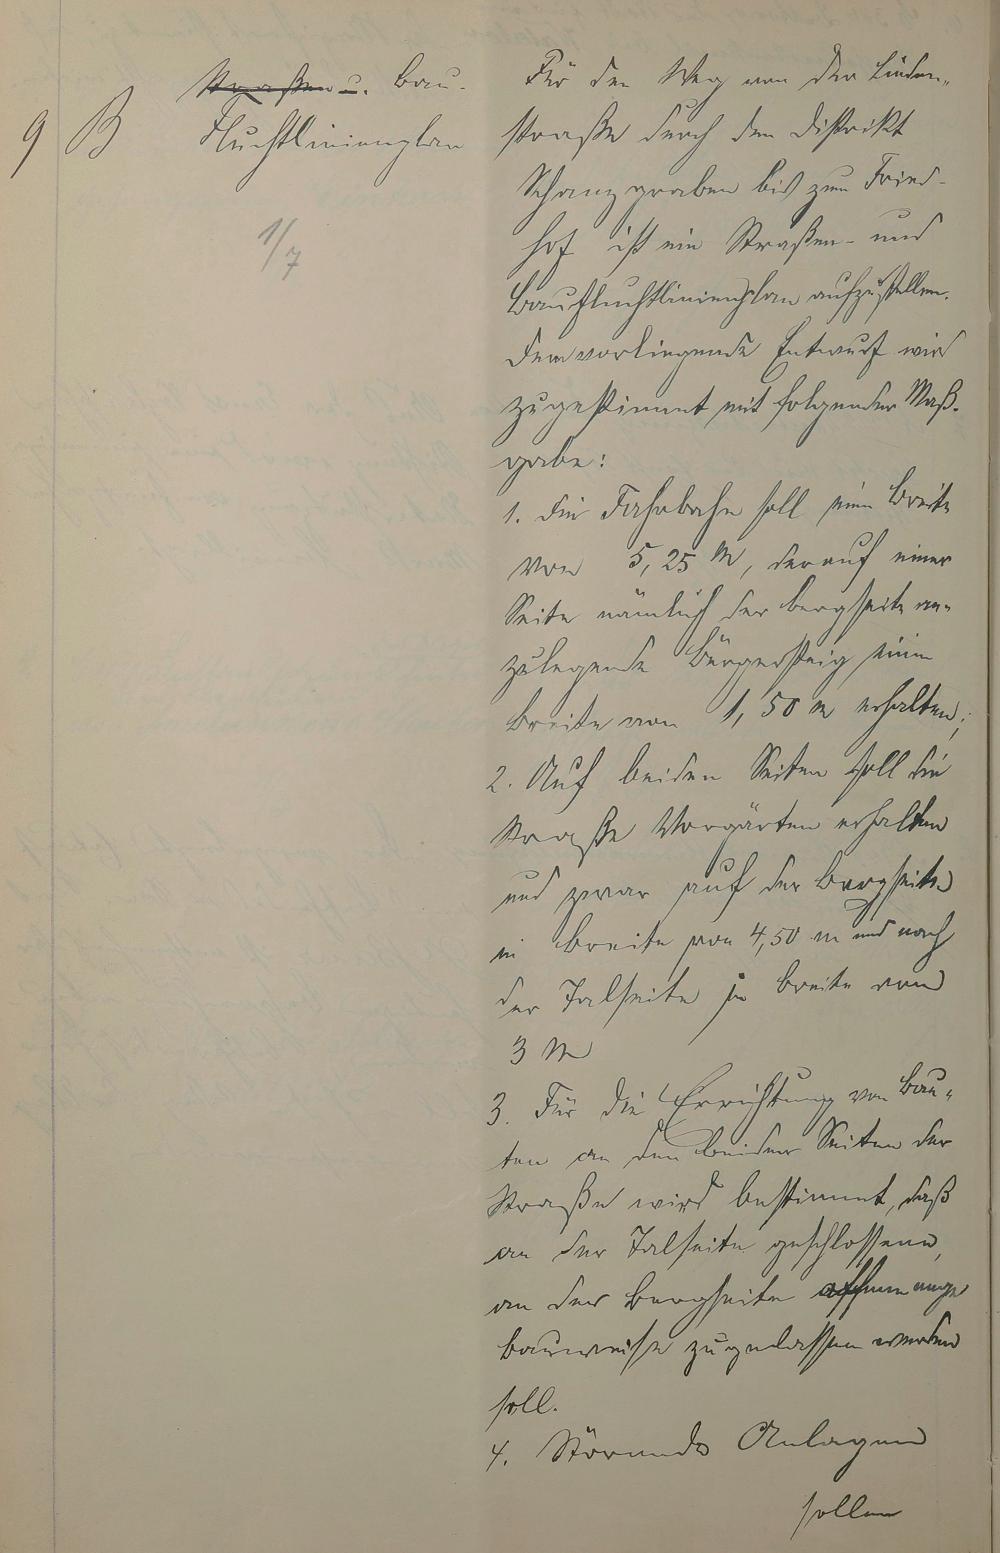 9 B
Straßen u. Bau-
Fluchtlinienplan
1/7
Für den Weg von der Linden-
straße durch den Distrikt
Schanzgraben bis zum Fried-
hof ist ein Straßen- und
Baufluchtlinienplan aufzustellen.
Dem vorliegende Entwurf wird
zugestimmt mit folgender Maß-
gabe:
1. Die Fahrbahn soll eine Breite
von 5,25 m, der auf einer
Seite nämlich der Bergseite an-
zulegende Bürgersteig eine
Breite von 1,50 m erhalten;
2. Auf beiden Seiten soll die
Straße Vorgärten erhalten
und zwar auf der Bergseite
in Breite von 4,50 m und nach
der Talseite in Breite von
3 m
3. Für die Errichtung von Bau-
ten an den beiden Seiten der
Straße wird bestimmt, daß
an der Talseite geschlossene,
an der Bergseite offene
Bauweise zugelassen werden
soll.
4. Störende Anlagen
sollen